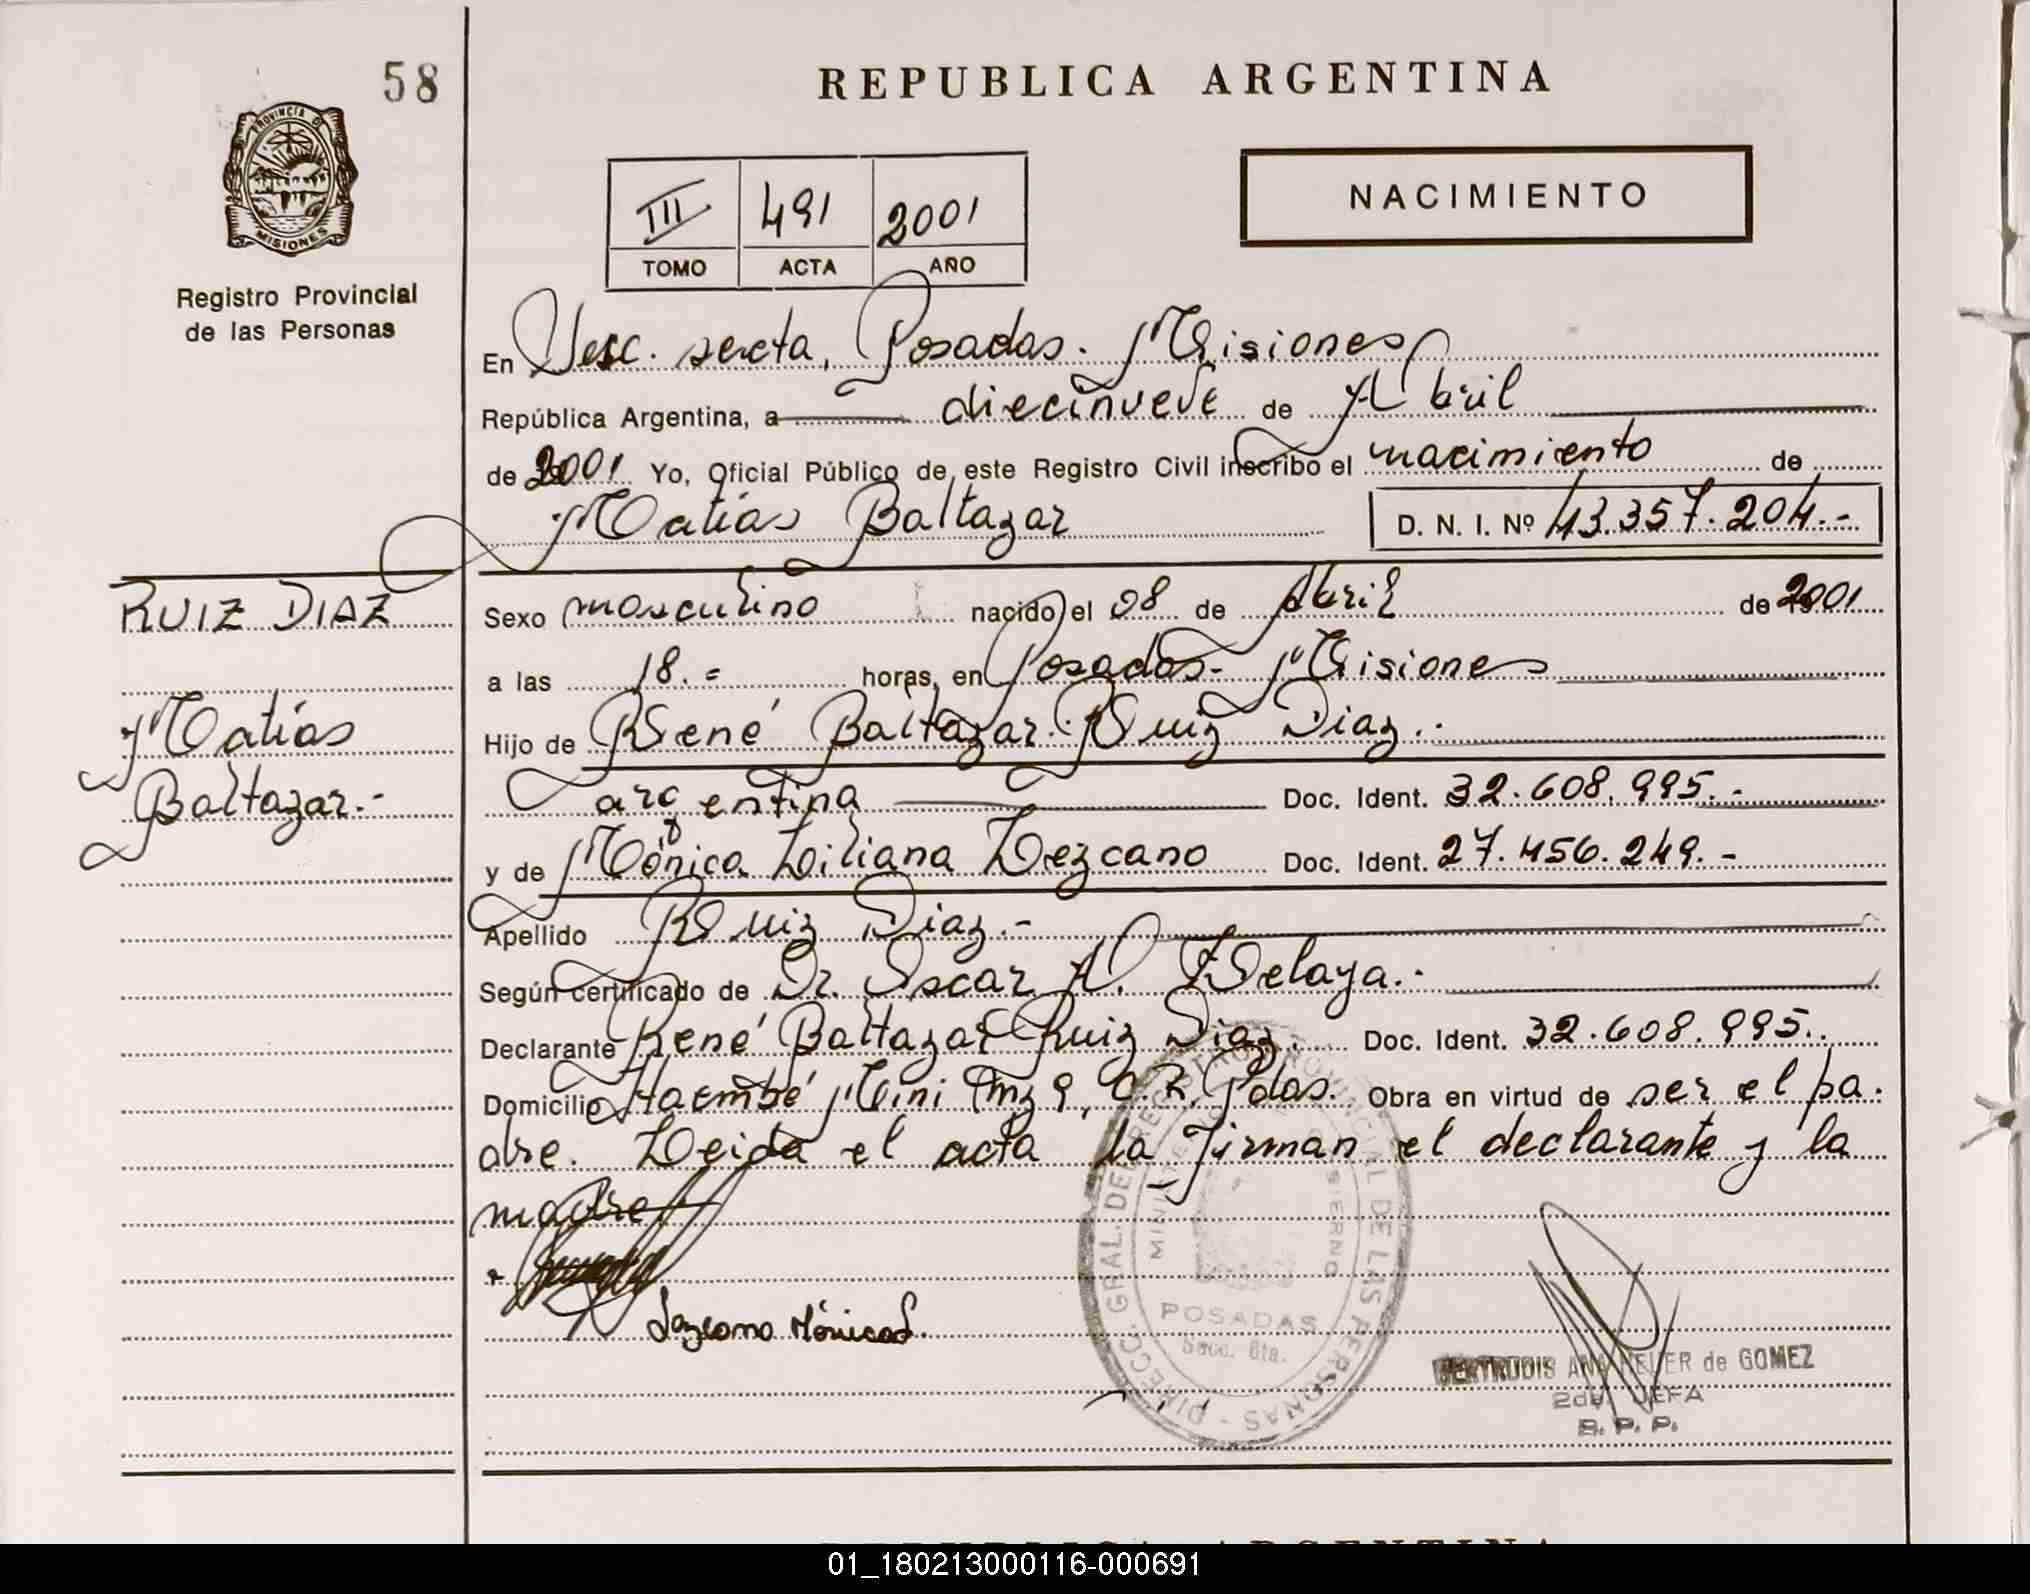 58
REPUBLICA ARGENTINA
PROVINCIA D
MISIONES
NACIMIENTO
III 491 2001
TOMO ACTA AÑO
Registro Provincial
de las Personas
En secc. sexta, Posadas. Misiones
República Argentina, a diecinueve de Abril
de 2001 Yo, Oficial Público de este Registro Civil inscribo el nacimiento de
Matías Baltazar D. N. I. Nº 43.357.204.-
RUIZ DIAZ
Sexo masculino nacido el 08 de Abril de 2001
a las 18.= horas, en Posadas- Misiones
Matías
Hijo de René Baltazar Ruiz Diaz.-
Baltazar.-
argentina Doc. Ident. 32.608.995.-
y de Mónica Liliana Lezcano Doc. Ident. 27.456.249.-
Apellido Ruiz Diaz.-
Según certificado de Dr. Oscar A. Zelaya.-
Declarante René Baltazar Ruiz Diaz. Doc. Ident. 32.608.995.
Domicilio Itaembé Mini Mz 9, Pdas. Obra en virtud de ser el pa-
dre. Leida el acta la firman el declarante y la
madre
Lezcano Mónica L.
DIRECC. GRAL. DEL REGISTRO PROVINCIAL DE LAS PERSONAS -
POSADAS
Secc. 6ta.
GERTRUDIS ANA de GOMEZ
2da. JEFA
R. P. P.
REPUBLICA ARGENTINA
01_180213000116-000691